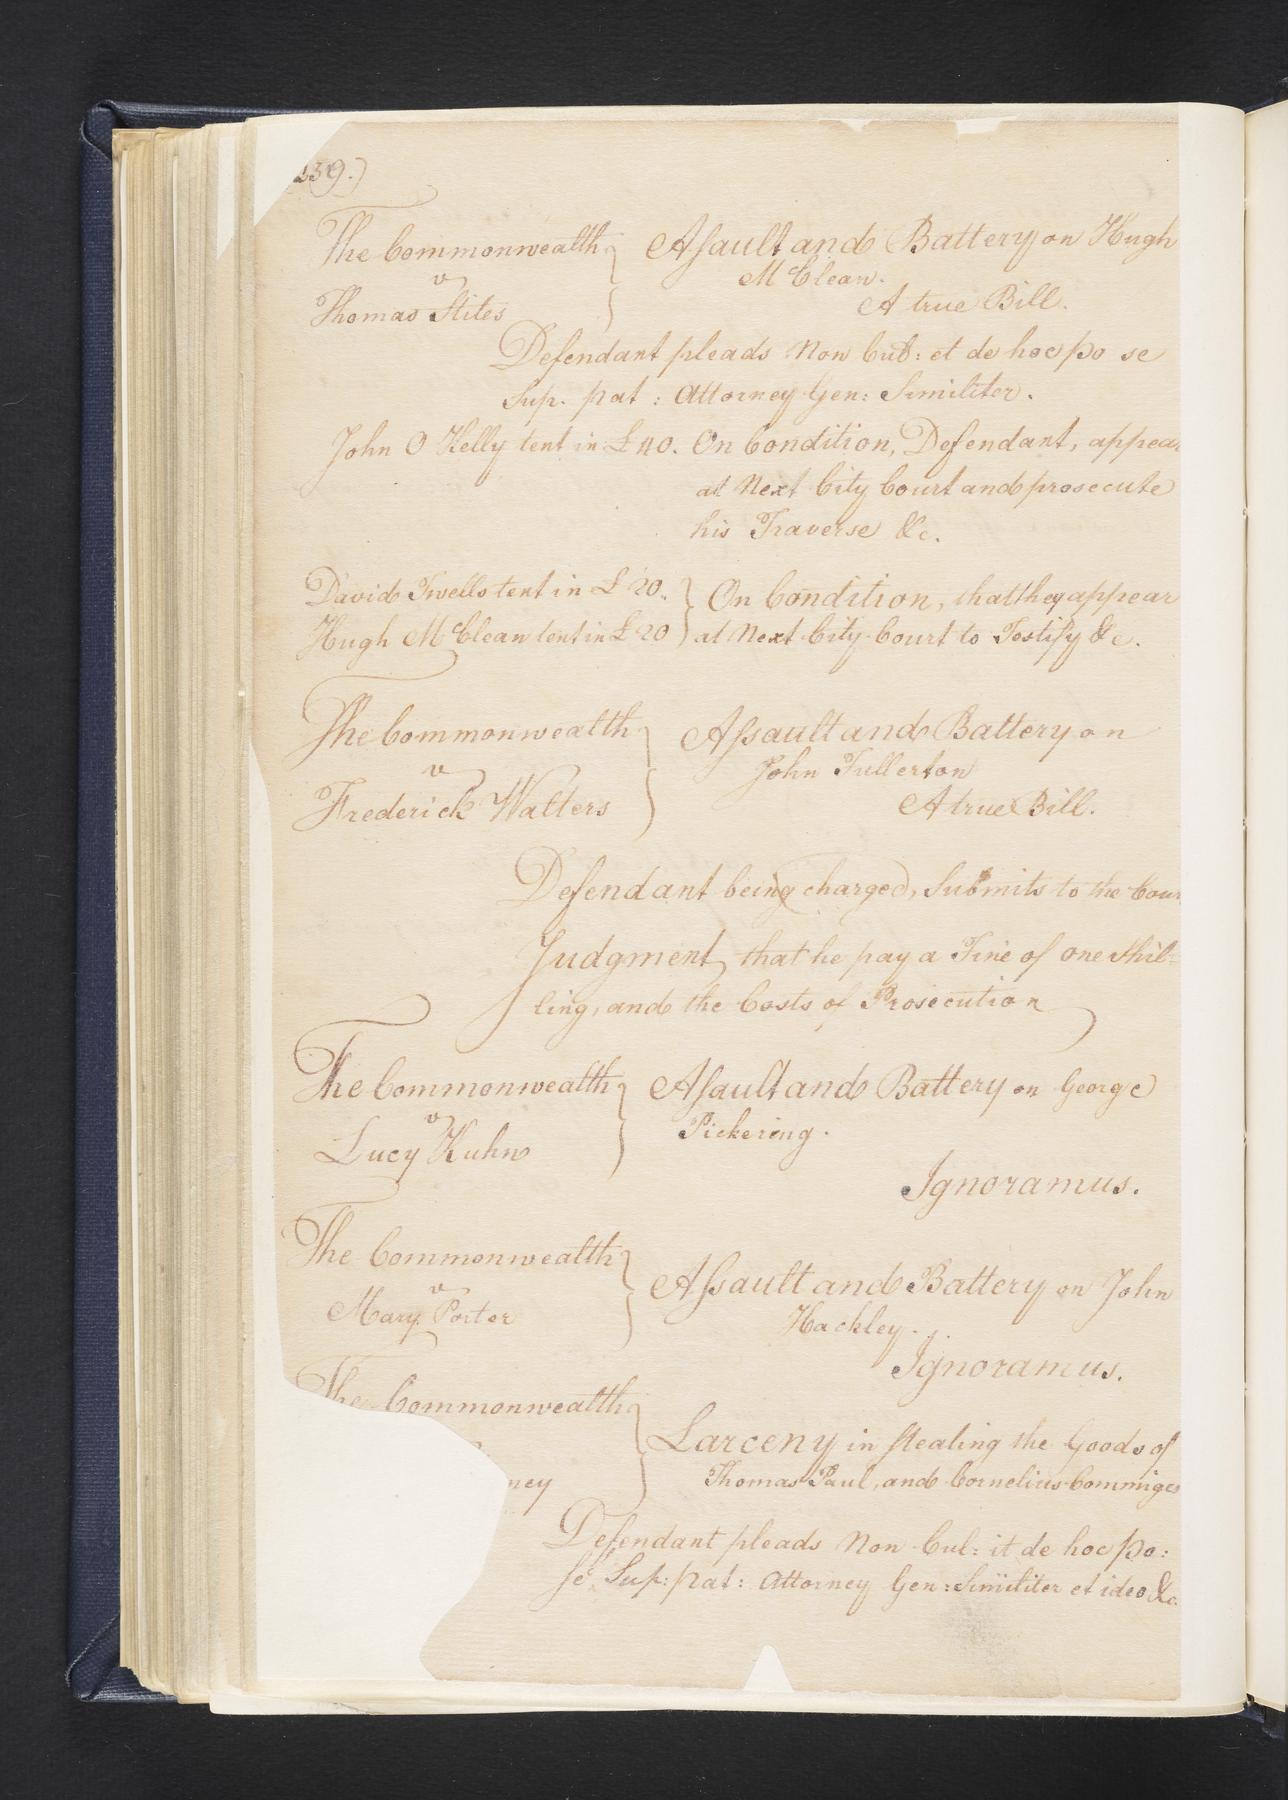 239.)
The Commonwealth } Assault and Battery on Hugh
v McClean.
Thomas Stites } A true Bill.
Defendant pleads Non Cul: et de hoc po se
Sup. pat: Attorney Gen: Similiter.
John O Kelly tent in £40. On Condition, Defendant, appear
at Next City Court and prosecute
his Traverse &c.
David Twells tent in £20. } On Condition, that they appear
Hugh McClean tent in £20 } at Next City Court to Testify &c.
The Commonwealth } Assault and Battery on
v John Fullerton
Frederick Walters } A true Bill.
Defendant being charged, Submits to the Cour
Judgment, that he pay a Fine of one Shil=
ling, and the Costs of Prosecution
The Commonwealth } Assault and Battery on George
v Pickering.
Lucy Kuhn }
Ignoramus.
The Commonwealth } Assault and Battery on John
v
Mary Porter } Hackley.
Ignoramus.
The Commonwealth } Larceny in stealing the Goods of
ney } Thomas Paul, and Cornelius Commiges
Defendant pleads Non Cul: it de hoc po:
se Sup: pat: Attorney Gen: Similiter et ideo &c.